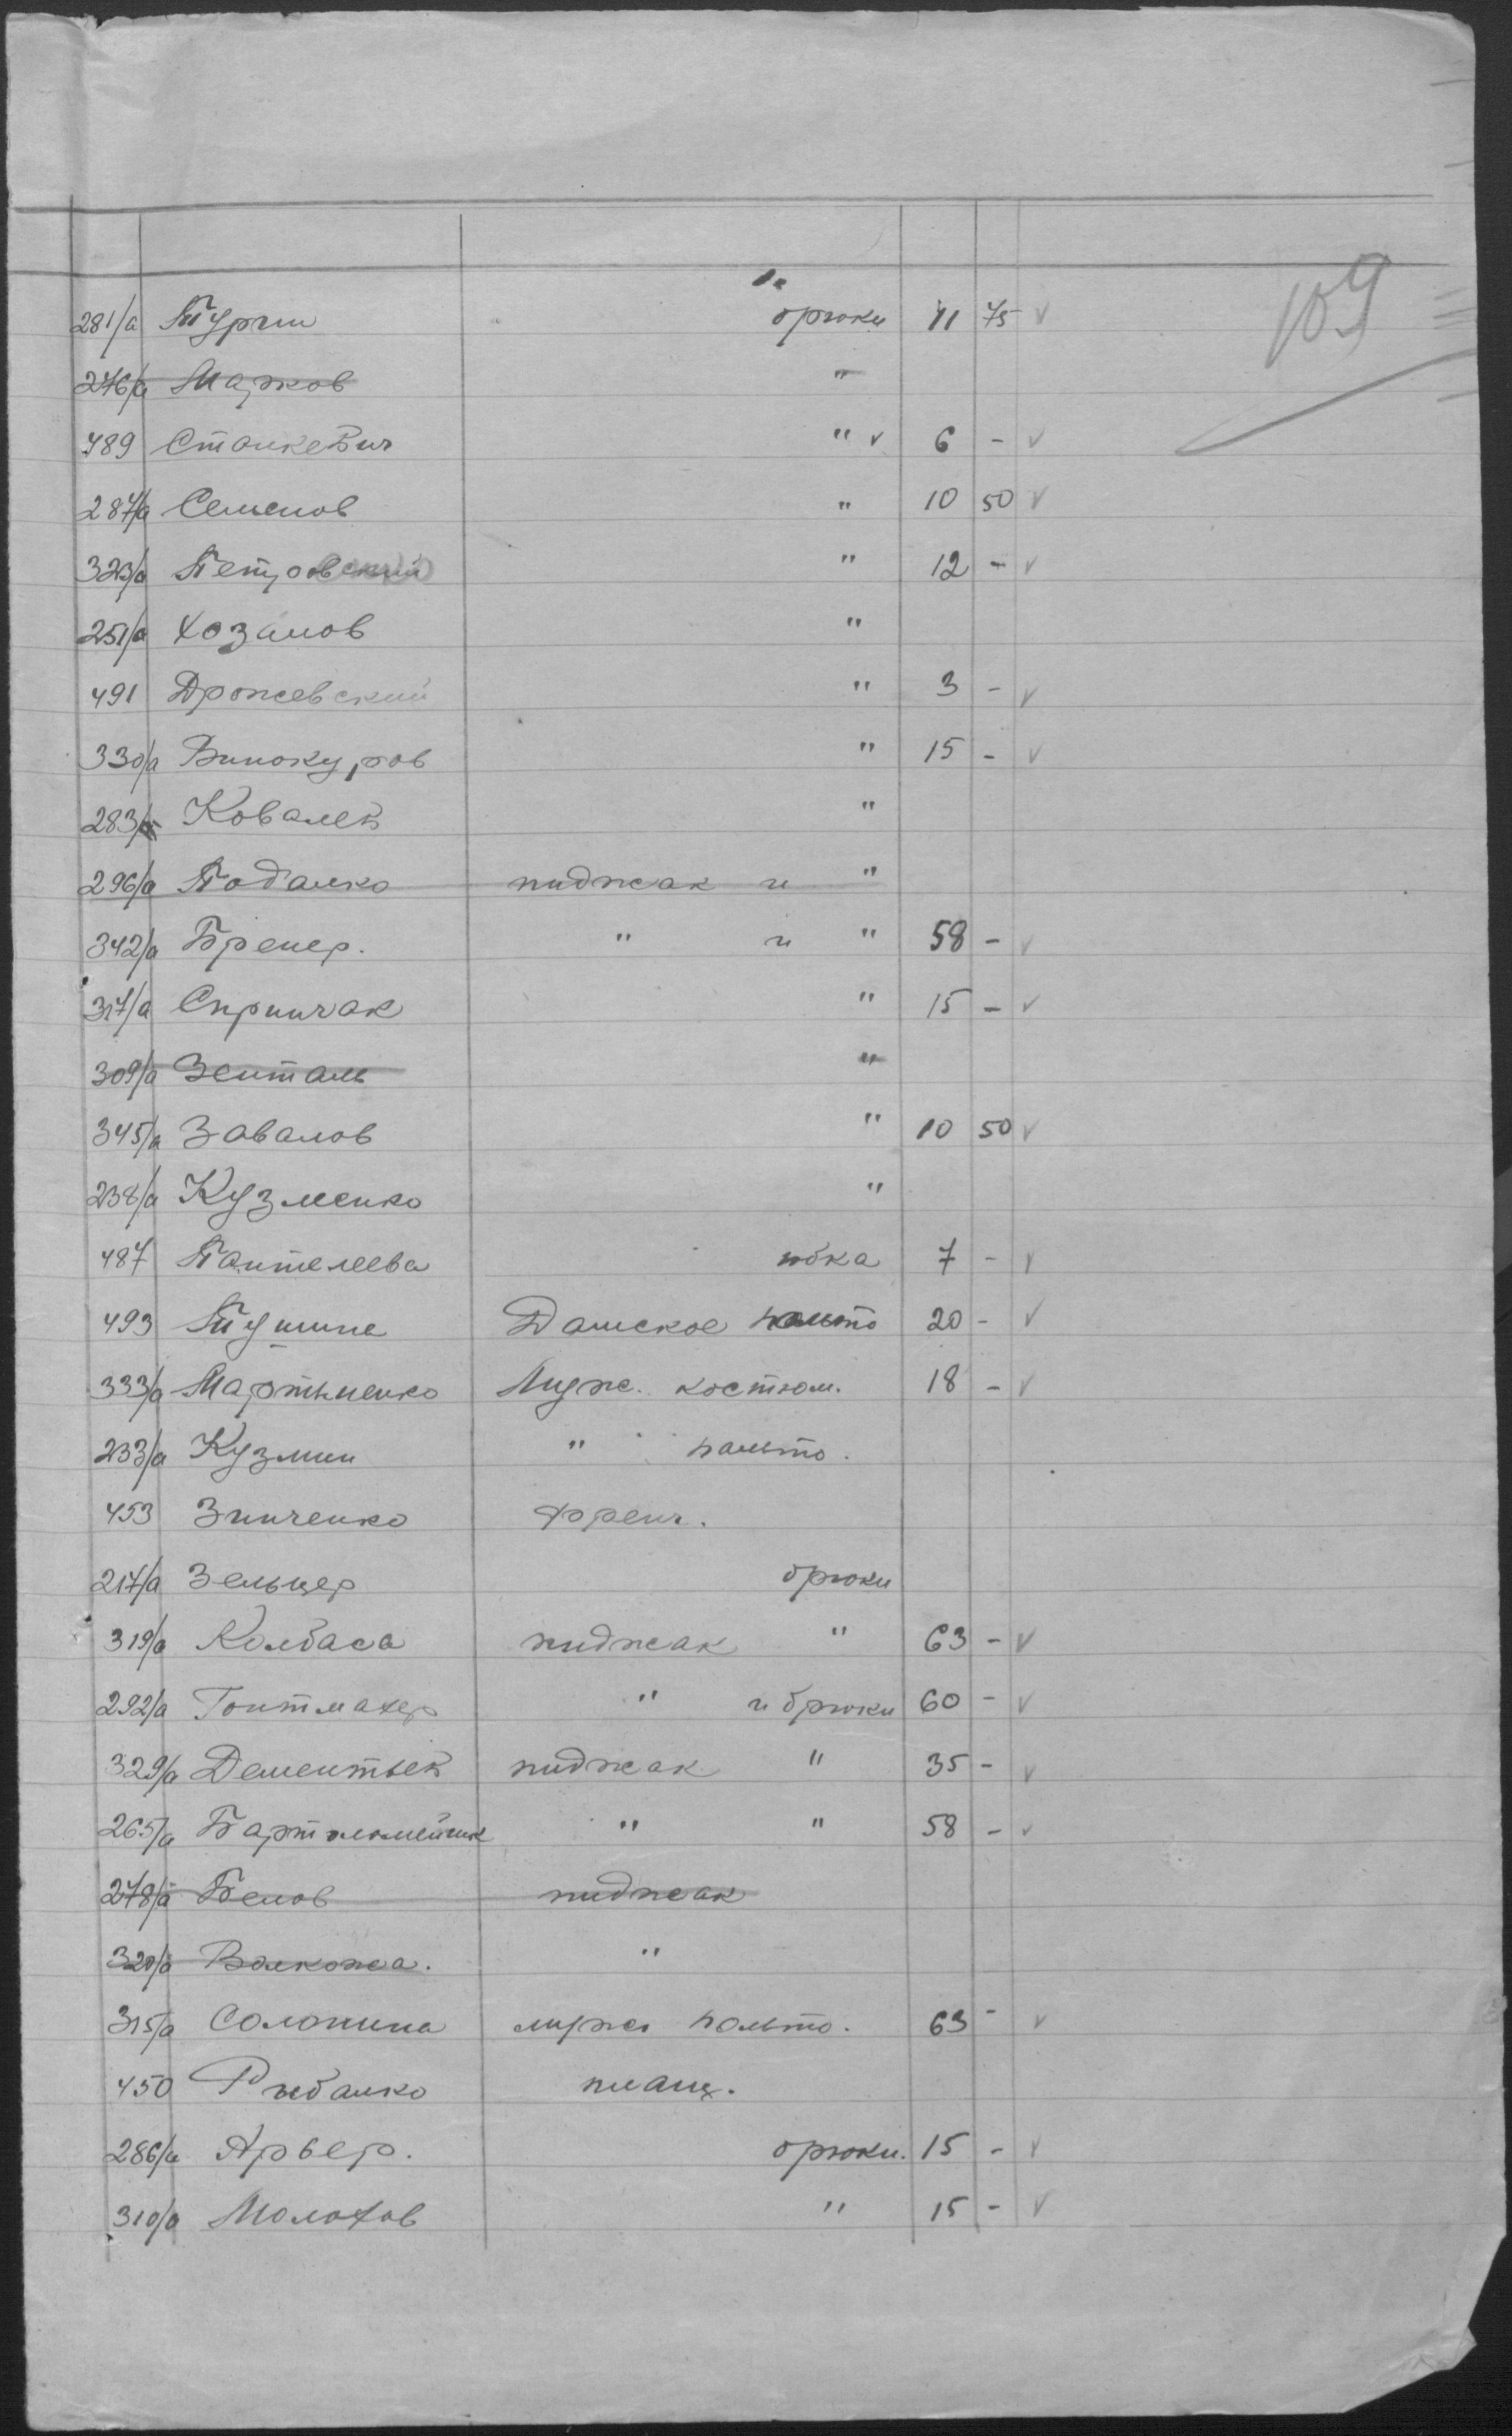 109
281/а Турчин брюки 11 75 ✓
276/а Марков "
489 Станкевич " ✓ 6 - ✓
287/а Семенов " 10 50 ✓
323/а Петровский " 12 - ✓
251/а Хозанов "
491 Дрожевский " 3 - ✓
330/а Винокуров " 15 - ✓
283/а Ковалев "
296/а Подалко пиджак и "
342/а Бренер. " и " 58 - ✓
317/а Спринчак " 15 - ✓
309/а Зенталь "
345/а Завалов " 10 50 ✓
238/а Кузменко "
487 Пантелеева юбка 7 - ✓
493 Дамское пальто 20 - ✓
333/а Мартыненко Мужс. костюм. 18 - ✓
233/а Кузмин " пальто.
453 Зинченко Френч.
217/а Зельцер брюки
319/а Колбаса пиджак " 63 - ✓
292/а Гонтмахер " и брюки 60 - ✓
329/а Дементьев пиджак " 35 - ✓
265/а " " 58 - ✓
278/а Белов пиджак
320/а "
315/а Солонина мужс пальто. 63 - ✓
450 Рыбалко плащ.
286/а Арвер. брюки. 15 - ✓
310/а Молохов " 15 - ✓